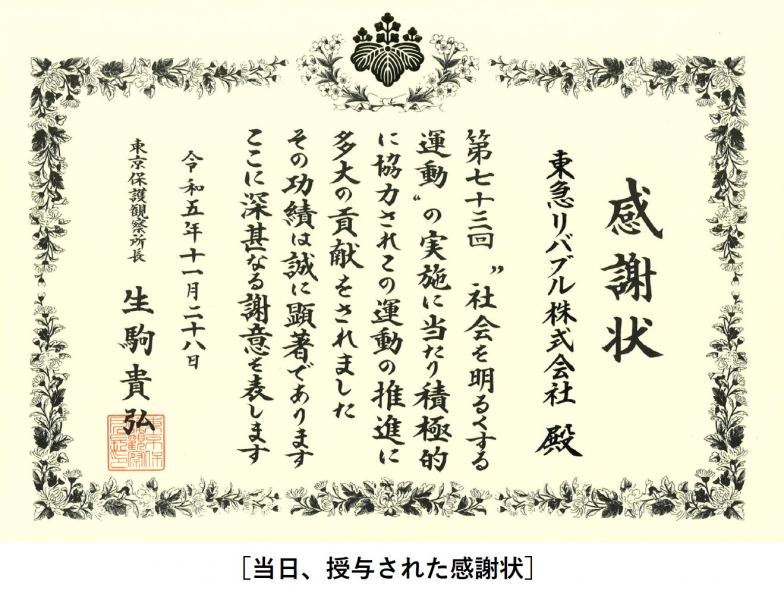 感謝状
東急リバブル株式会社 殿
第七十三回 〝社会を明るくする
運動〟の実施に当たり積極的
に協力されこの運動の推進に
多大の貢献をされました
その功績は誠に顕著であります
ここに深甚なる謝意を表します
令和五年十一月二十八日
東京保護観察所長 生駒貴弘
［当日、授与された感謝状］